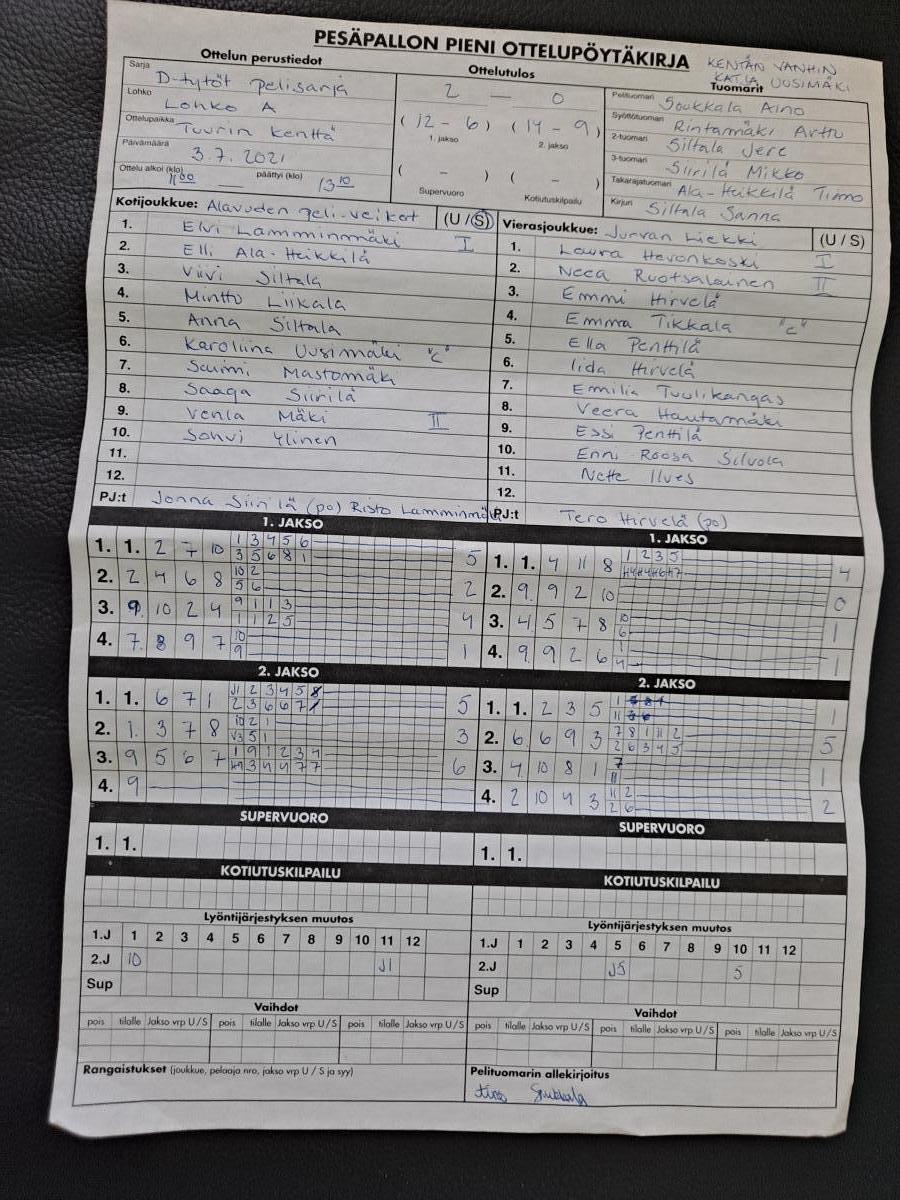 PESÄPALLON PIENI OTTELUPÖYTÄKIRJA
KENTÄN VANHIN
KATJA UUSIMÄKI
Ottelun perustiedot
Ottelutulos
Tuomarit
Sarja D-tytöt pelisarja
Lohko Lohko A
Ottelupaikka Tuurin kenttä
Päivämäärä 3.7.2021
Ottelu alkoi (klo) 11 00 — päättyi (klo) 13 10
2 — 0
( 12 - 6 ) ( 14 - 9 )
1. jakso 2. jakso
( - ) ( - )
Supervuoro Kotiutuskilpailu
Pelituomari Soukkala Aino
Syöttötuomari Rintamäki Arttu
2-tuomari Siltala Jere
3-tuomari Siirilä Mikko
Takarajatuomari Ala-Heikkilä Timo
Kirjuri Siltala Sanna
Kotijoukkue: Alavuden peli-veikot (U / S)
1. Elvi Lamminmäki I
2. Elli Ala-Heikkilä
3. Viivi Siltala
4. Minttu Liikala
5. Anna Siltala
6. Karoliina Uusimäki "C"
7. Saimi Mastomäki
8. Saaga Siirilä
9. Venla Mäki II
10. Sohvi Ylinen
11.
12.
PJ:t Jonna Siirilä (po) Risto Lamminmäki
Vierasjoukkue: Jurvan Liekki (U / S)
1. Laura Hevonkoski I
2. Neea Ruotsalainen II
3. Emmi Hirvelä
4. Emma Tikkala "C"
5. Ella Penttilä
6. Iida Hirvelä
7. Emilia Tuulikangas
8. Veera Hautamäki
9. Essi Penttilä
10. Enni-Roosa Silvola
11. Nette Ilves
12.
PJ:t Tero Hirvelä (po)
1. JAKSO
1. 1. 2 7 10 1 3 4 5 6 5
3 5 6 8 1
2. 2 4 6 8 10 2 2
5 6
3. 9. 10 2 4 9 1 1 3 4
1 1 2 5
4. 7. 8 9 7 10 1
9
1. JAKSO
1. 1. 4 11 8 1 2 3 5 4
2. 9. 9 2 10 0
3. 4 5 7 8 10 1
6
4. 9. 9 2 6 1 1
4
2. JAKSO
1. 1. 6 7 1 J1 2 3 4 5 5
2 3 6 6 7
2. 1. 3 7 8 10 2 1 3
5 1
3. 9 5 6 7 1 9 1 2 3 4 6
3 4 4 7 7
4. 9
2. JAKSO
1. 1. 2 3 5 1 1
11
2. 6 6 9 3 7 8 1 11 2 5
2 6 3 4 5
3. 4 10 8 1 7 1
11
4. 2 10 4 3 11 2 2
2 6
SUPERVUORO
1. 1.
SUPERVUORO
1. 1.
KOTIUTUSKILPAILU
KOTIUTUSKILPAILU
Lyöntijärjestyksen muutos
1.J 1 2 3 4 5 6 7 8 9 10 11 12
2.J 10 J1
Sup
Lyöntijärjestyksen muutos
1.J 1 2 3 4 5 6 7 8 9 10 11 12
2.J J5 5
Sup
Vaihdot
pois tilalle Jakso vrp U / S pois tilalle Jakso vrp U / S pois tilalle Jakso vrp U / S
Vaihdot
pois tilalle Jakso vrp U / S pois tilalle Jakso vrp U / S pois tilalle Jakso vrp U / S
Rangaistukset (joukkue, pelaaja nro, jakso vrp U / S ja syy)
Pelituomarin allekirjoitus
Aino Soukkala